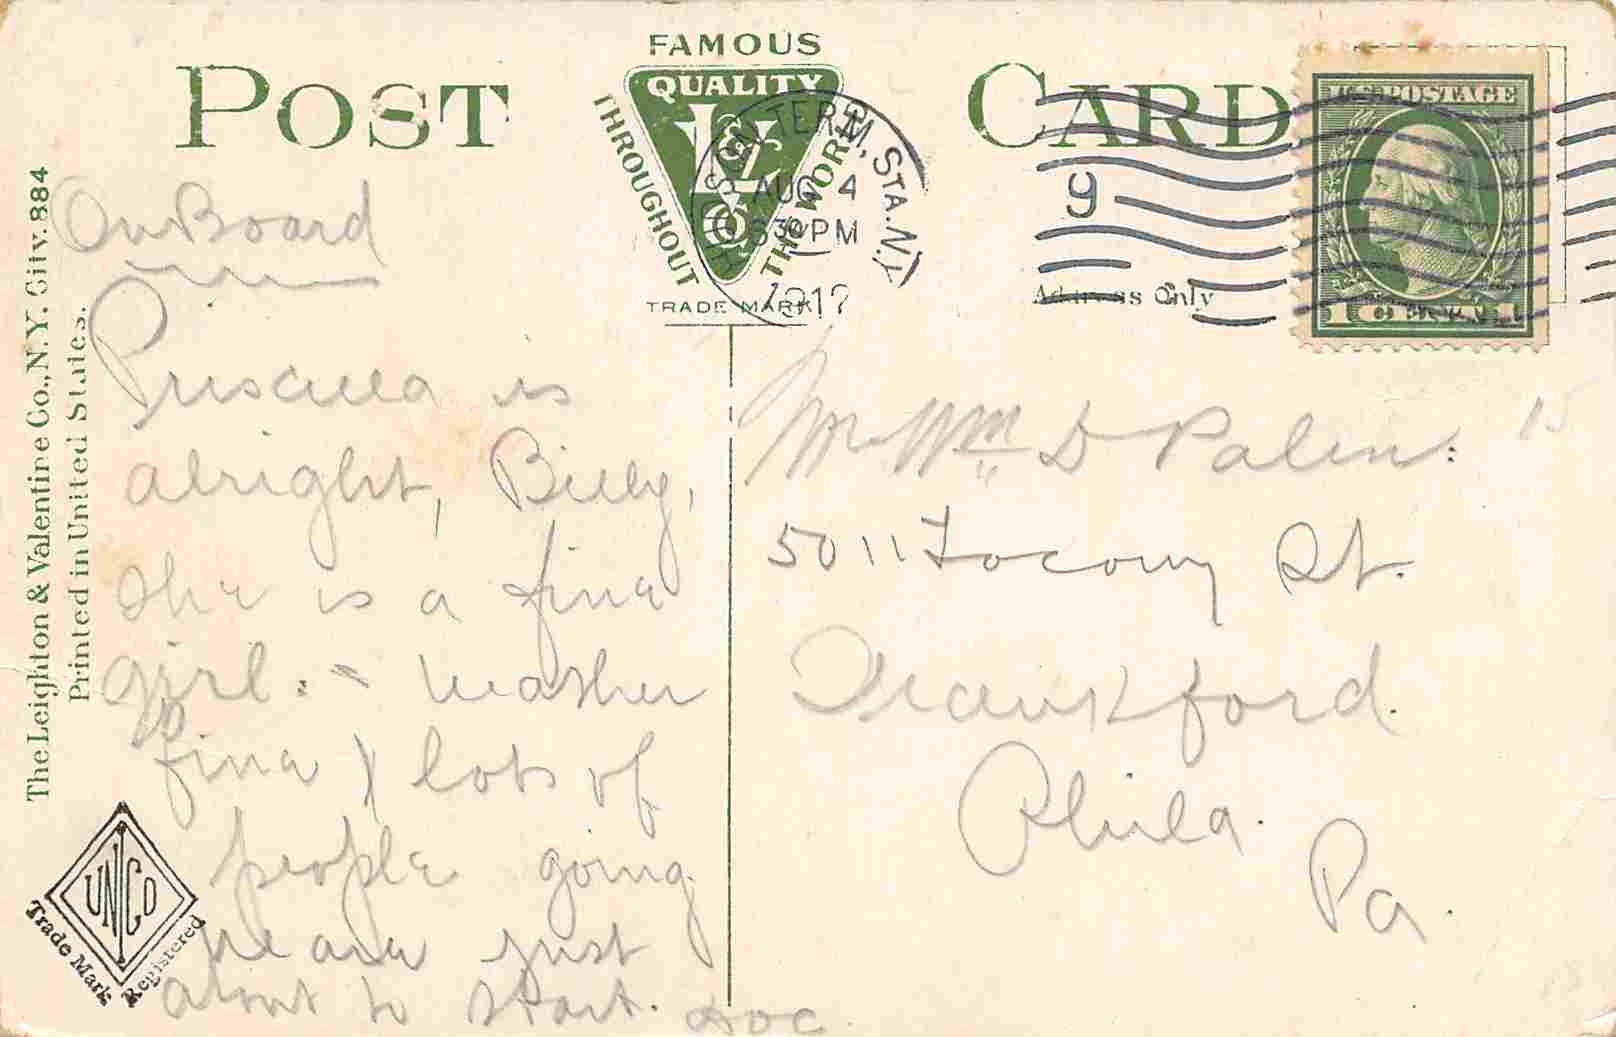 POST CARD
FAMOUS
QUALITY
THROUGHOUT
THE WORLD
TRADE MARK
TERM. STA. N.Y.
AUG 4
630 PM
1917
9
U.S. POSTAGE
Address Only
The Leighton & Valentine Co., N.Y. City. 884
Printed in United States.
UNCO
Trade Mark Registered
On Board
Priscilla is
alright, Billy,
She is a fine
girl. - weather
fine & lots of
people going
we are just
about to start. Doc
Mr Wm D Palen.
5011 Tacony St.
Frankford.
Phila.
Pa.
15